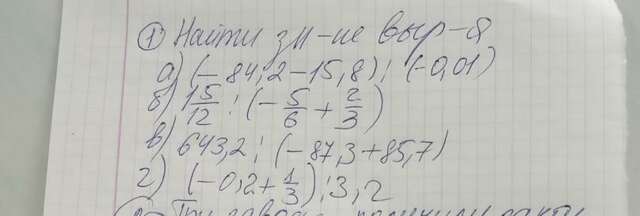 ① Найти зн-ие выр-я
а) (-84,2-15,8) : (-0,01)
б) 15/12 : (-5/6 + 2/3)
в) 643,2 : (-87,3+85,7)
г) (-0,2+1/3) : 3,2